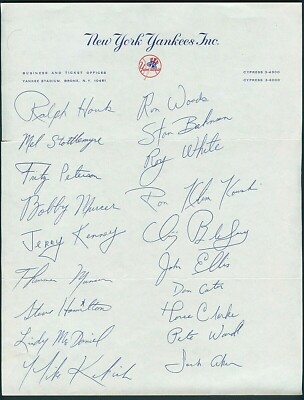 New York Yankees Inc.
BUSINESS AND TICKET OFFICES
YANKEE STADIUM, BRONX, N.Y. 10451
CYPRESS 3-4300
CYPRESS 3-6000
Ralph Houk
Mel Stottlemyre
Fritz Peterson
Bobby Murcer
Jerry Kenney
Thurman Munson
Steve Hamilton
Lindy McDaniel
Mike Kekich
Ron Woods
Stan Bahnsen
Roy White
Ron Klimkowski
John Ellis
Horace Clarke
Pete Ward
Jack Aker